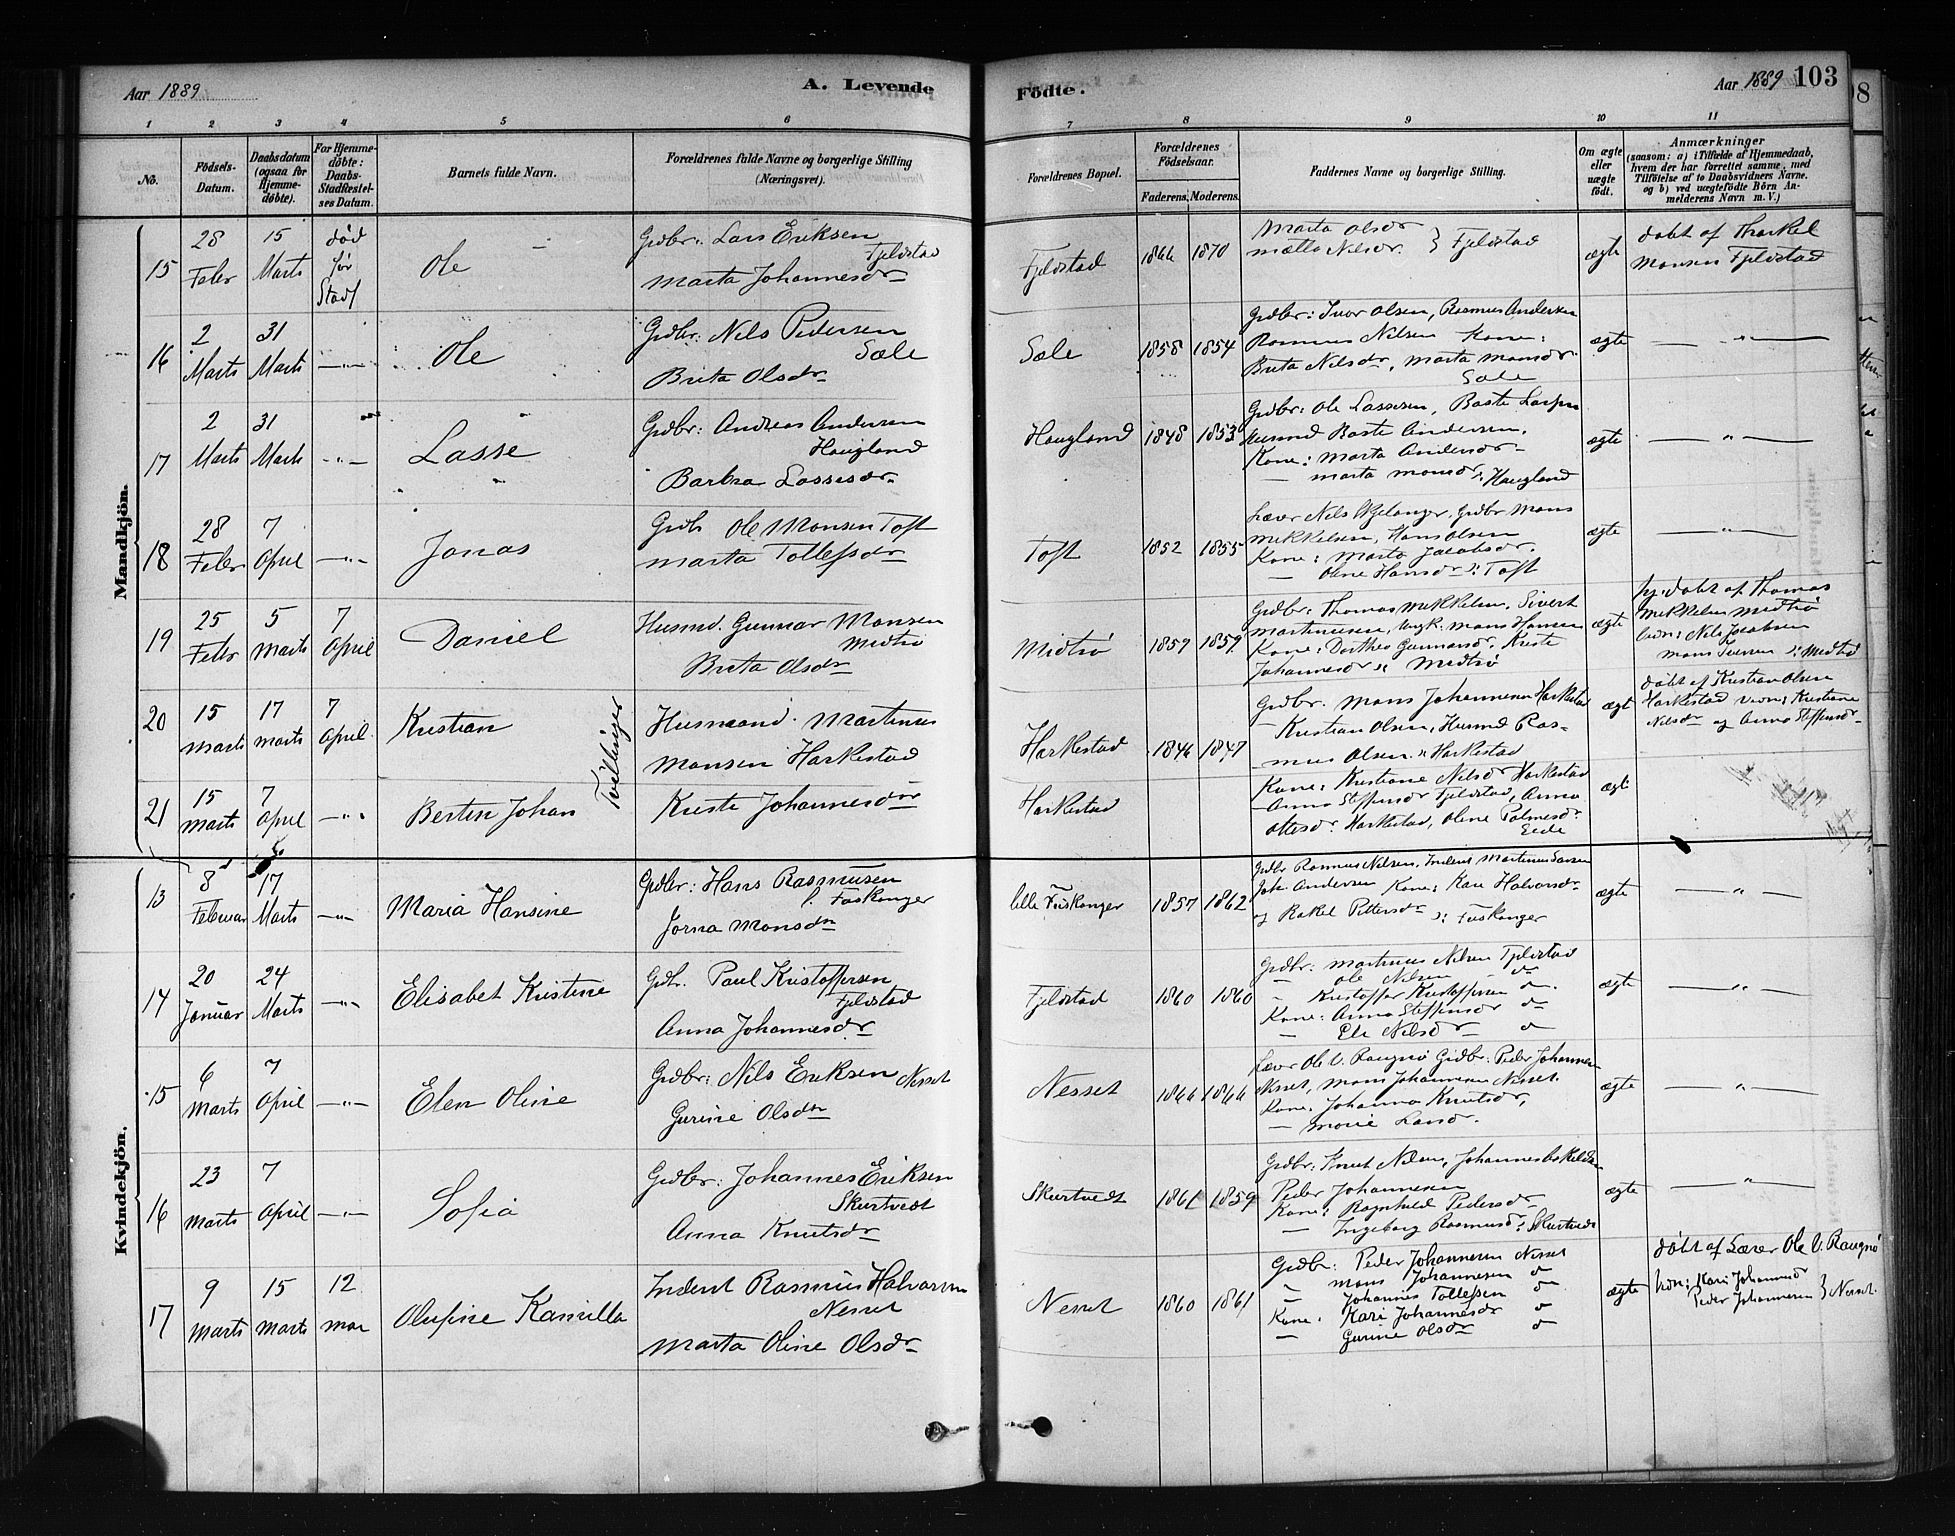 Aar 1889
A. Levende
Födte.
Aar 1889 103
1 2 3 4 5 6 7 8 9 10 11
No.
Födsels-Datum.
Daabsdatum (ogsaa for Hjemmedøbte).
For Hjemmedøbte: Daabs-Stadfestelses Datum.
Barnets fulde Navn.
Forældrenes fulde Navne og borgerlige Stilling (Næringsvei).
Forældrenes Bopæl.
Forældrenes Födselsaar.
Faderens. Moderens.
Faddernes Navne og borgerlige Stilling.
Om ægte eller uægte födt.
Anmærkninger
(saasom: a) i Tilfælde af Hjemmedaab,
hvem der har forrettet samme, med
Tilföielse af to Daabsvidners Navne,
og b) ved uægtefödte Börn Anmelderens Navn m. V.)
Mandkjön.
15 28 Febr 15 Marts død før Stadf Ole
Grdbr: Lars Eriksen
Fjeldstad
Marta Johannesdr
Fjeldstad 1866 1870
Marta Olsdr
Mætte Nilsdr } Fjeldstad
ægte
døbt af Thorkel
Monsen Fjeldstad
16 2 Marts 31 Marts —"— Ole
Grdbr: Nils Pedersen
Sæle
Brita Olsdr
Sæle 1858 1854
Grdbr: Ivar Olsen, Rasmus Andersen
Rasmus Nilsen Kone:
Brita Nilsdr, Marta Monsdr
Sæle
ægte — " —
17 2 Marts 31 Marts —"— Lasse
Grdbr: Andreas Andersen
Haugland
Barbra Lassesdr
Haugland 1848 1853
Grdbr: Ole Lassesen, Baste Larsen
Husmd Baste Andersen,
Kone: Marta Andersdr
— Marta Monsdr: Haugland
ægte — " —
18 28 Febr 7 April —"— Jonas
Grdb Ole Monsen Toft
Marta Tollefsdr
Toft 1852 1855
Lærer Nils Kjelanger, Grdbr Mons
Mikkelsen, Hans Olsen
Kone: Marta Jacobsdr.
— Oline Hansdr: Toft
ægte — " —
19 25 Febr 5 Marts 7 April Daniel
Husmd. Gunnar Monsen
Midtrø
Brita Olsdr
Midtrø 1859 1859
Grdbr: Thomas Mikkelsen, Sivert
Martinusen, Ungk. Mons Hansen
Kone: Dorthea Gunnarsdr, Kriste
Johannesdr: Midtrø
ægte
hj. døbt af Thomas
Mikkelsen Midtrø
Vidn: Nils Jacobsen
Mons Iversen : Midtrø
20 15 Marts 17 Marts 7 April Kristian
Tvillinger
Husmand. Martinus
Monsen Harkestad
Harkestad 1846 1847
Grdbr. Mons Johannesen Harkestad
— Kristian Olsen, Husmd Rasmus Olsen: Harkestad
ægt
døbt af Kristian Olsen
Harkestad Vidn: Kristiane
Nilsdr og Anna Steffensdr
21 15 Marts 7 April —"— Berten Johan
Kriste Johannesdr
Harkestad
Kone: Kristiane Nilsdr Harkestad
Anna Steffensdr Fjeldstad, Anna
Ottesdr. Harkestad, Oline Palmesdr.
Eide
ægt
Kvindekjön.
13 8 Februar 17 Marts —"— Maria Hansine
Grdbr: Hans Rasmusen
l. Fuskanger
Jorna Monsdr
lille Fuskanger 1857 1862
Grdbr Rasmus Nilsen, Inderst Martinus Larsen
Joh. Andersen Kone: Kari Halvorsdr
og Rakel Pittersdr : Fuskanger
ægte — " —
14 20 Januar 24 Marts —"— Elisabet Kristine
Gdb. Paul Kristoffersen
Fjeldstad
Anna Johannesdr
Fjeldstad 1860 1860
Grdbr: Martinus Nilsen Fjeldstad
— Ole Nilsen do
" Kristoffer Kristoffersen do
Kone: Anna Steffensdr do
— Eli Nilsdr do
ægte — " —
15 6 Marts 7 April —"— Elen Oline
Grdbr: Nils Eriksen Nesset
Gurine Olsdr
Nesset 1866 1866
Lærer Ole V. Raugnø Grdbr: Peder Johannesen
Nesset, Mons Johannesen Nesset.
Kone. Johanna Knutsdr,
— Larsdr.
ægte — " —
16 23 Marts 7 April —"— Sofia
Grdbr: Johannes Eriksen
Skurtvedt
Anna Knutsdr
Skurtvedt 1861 1859
Grdbr: Knut Nilsen, Johannes Eskildsen
Peder Johannesen
Kone: Ragnhild Pedersdr
— Ingeborg Rasmusdr: Skurtvedt
ægte — " —
17 9 Marts 15 Marts 12 Mai Olufine Kamilla
Inderst Rasmus Halvorsen
Nesset
Marta Oline Olsdr
Nesset 1860 1861
Grdbr: Peder Johannesen Nesset
" Mons Johannesen do
— Johannes Tollefsen do
Kone. Kari Johannesdr do
— Gurine Olsdr do
ægte
døbt af Lærer Ole V. Raugnø
Vidn: Kari Johannesdr
Peder Johannesen } Nesset.